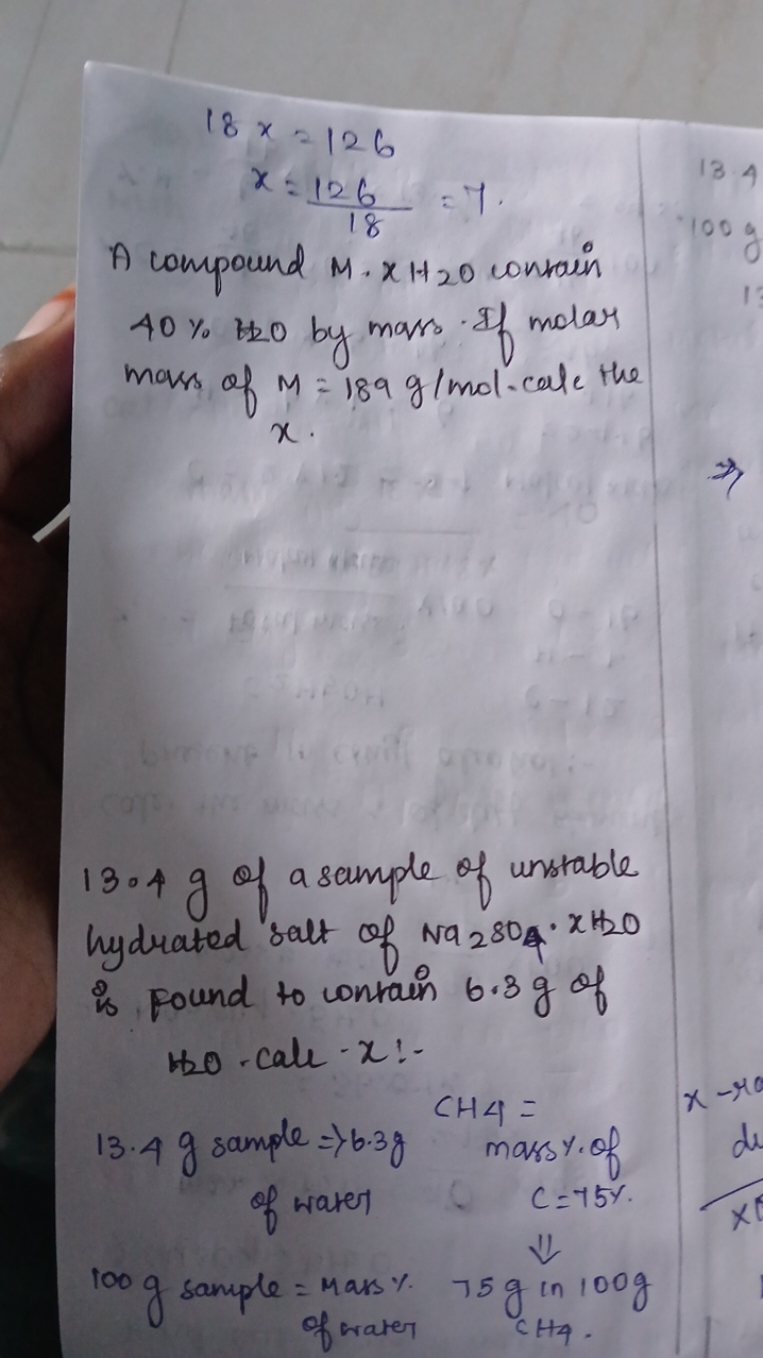 18 x = 126
x = 126/18 = 7.
A compound M. xH2O contain
40% H2O by mass. If molar
mass of M = 189 g/mol. calc the
x.
13.4 g of a sample of unstable
hydrated salt of Na2SO4. xH2O
is found to contain 6.3 g of
H2O. calc. x:-
13.4 g sample => 6.3g
of water
100 g sample = Mass %
of water
CH4 =
mass %. of
C = 75%.
⇓
75 g in 100g
CH4.
13.4
100 g
13
⇒
x